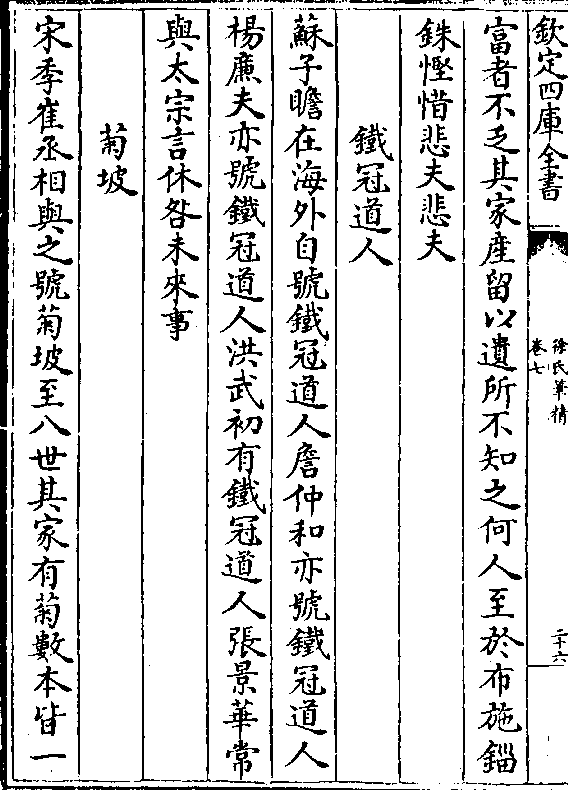 欽定四庫全書
徐氏筆精
卷七
二十六
富者不乏其家產留以遺所不知之何人至於布施錙
銖慳惜悲夫悲夫
鐵冠道人
蘇子瞻在海外自號鐵冠道人詹仲和亦號鐵冠道人
楊廉夫亦號鐵冠道人洪武初有鐵冠道人張景華常
與太宗言休咎未來事
菊坡
宋季崔丞相與之號菊坡至八世其家有菊數本皆一